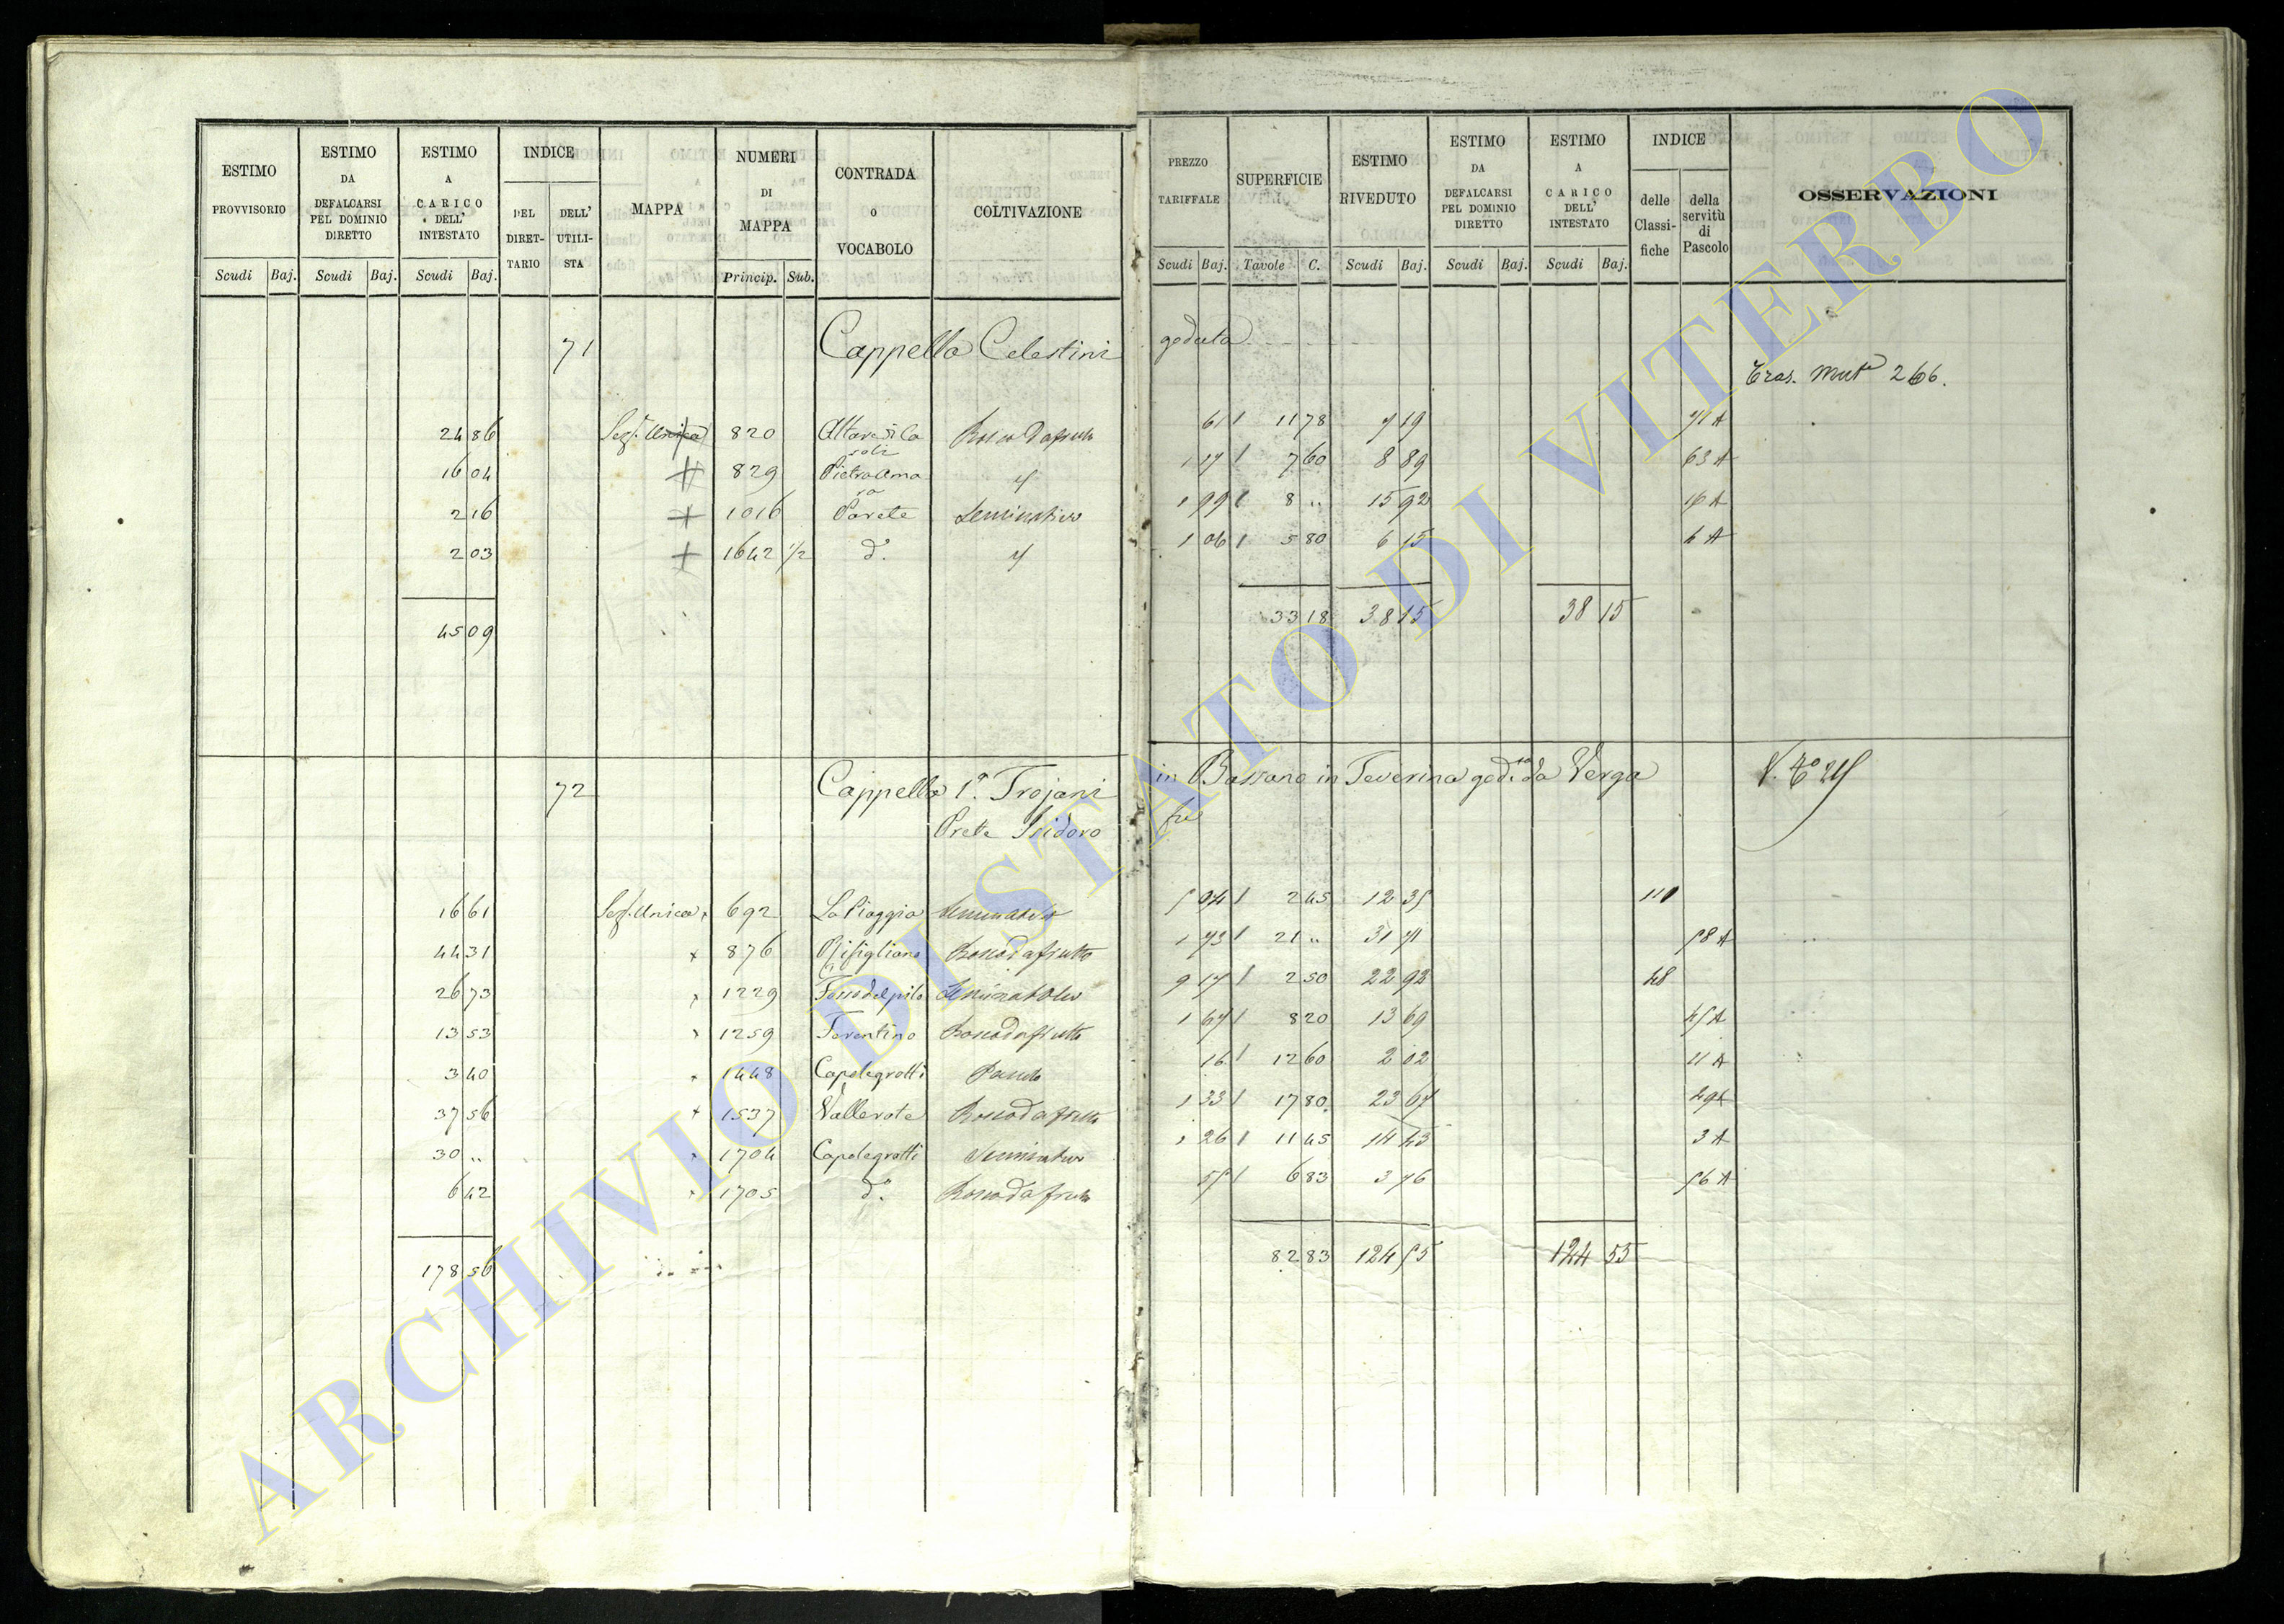 ESTIMO PROVVISORIO Scudi Baj.
ESTIMO DA DEFALCARSI PEL DOMINIO DIRETTO Scudi Baj.
ESTIMO A CARICO DELL' INTESTATO Scudi Baj.
INDICE DEL DIRETTARIO DELL' UTILISTA
MAPPA
NUMERI DI MAPPA Princip. Sub.
CONTRADA O VOCABOLO
COLTIVAZIONE
PREZZO TARIFFALE Scudi Baj.
SUPERFICIE Tavole C.
ESTIMO RIVEDUTO Scudi Baj.
ESTIMO DA DEFALCARSI PEL DOMINIO DIRETTO Scudi Baj.
ESTIMO A CARICO DELL' INTESTATO Scudi Baj.
INDICE delle Classifiche della servitù di Pascolo
OSSERVAZIONI
71 Cappella Celestini goduta
Tras. Mut. 266.
24 86 Sez. Unica 820 Bosco da frutto 61 11 78 7 19 71 A
16 04 829 Pietra Amara 1 17 7 60 8 89 63 A
2 16 1016 Parete Seminativo 1 99 8 .. 15 92 16 A
2 03 1642 1/2 d.° 1 06 5 80 6 15 6 A
45 09 33 18 38 15 38 15
72 Cappella 1ª Trojani in Bassano in Teverina god. da Verga
Prete Isidoro
16 61 Sez. Unica 692 La Piaggia Seminativo 5 04 2 45 12 35 110
44 31 876 Bosco da frutto 21 .. 58 A
26 73 1229 Fosso del pilo Seminativo 9 17 2 50 22 92 48
13 53 1259 Ferentino Bosco da frutto 1 67 8 20 13 69 45 A
3 40 1448 Capolegrotti 16 12 60 2 02 11 A
37 56 1537 Vallerate Bosco da frutto 1 33 17 80 23 67
30 .. 1704 Capolegrotti Seminativo 1 26 11 45 14 43 3 A
6 42 1705 d.° Bosco da frutto 55 6 83 3 76 56 A
178 56 82 83 124 55 124 55
ARCHIVIO DI STATO DI VITERBO